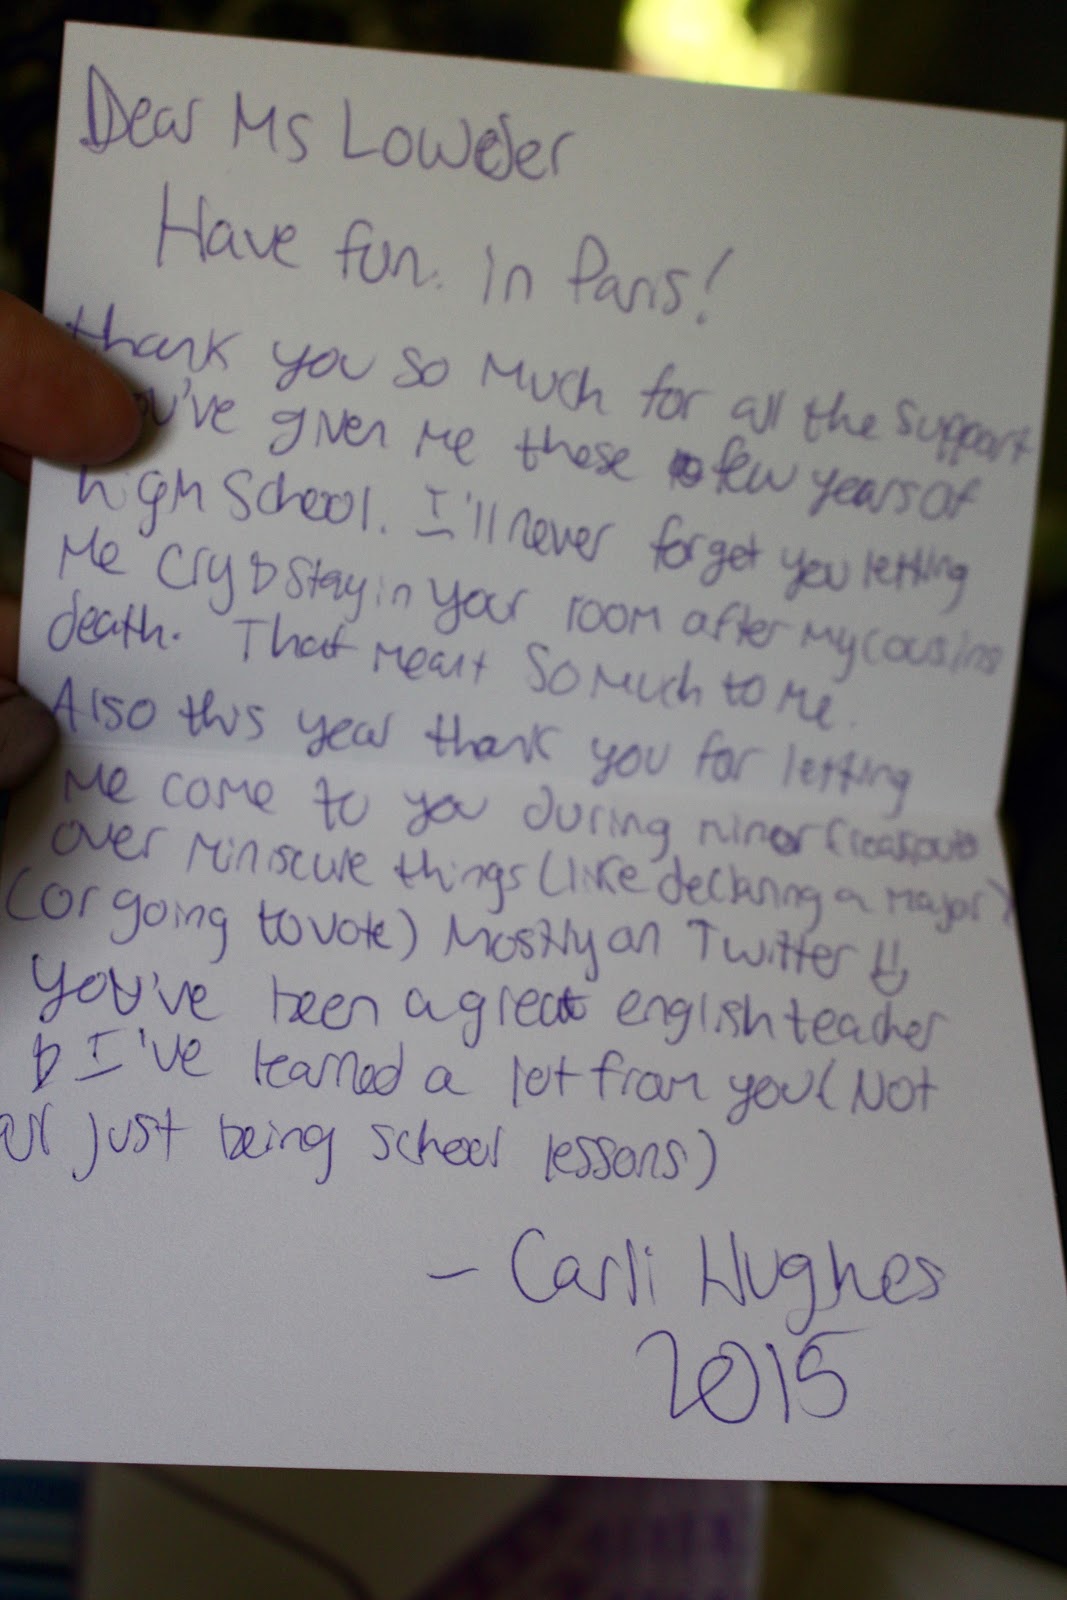 Dear Ms Loweder
Have fun. in Paris!
thank you so much for all the support
you've given me these few years of
high school. I'll never forget you letting
me cry & stay in your room after my cousins
death. That meant so much to me.
Also this year thank you for letting
me come to you during minor freakouts
over miniscule things (like declaring a major)
(or going to vote) Mostly on Twitter
You've been a great english teacher
& I've learned a lot from you (Not
all just being school lessons)
- Carli Hughes
2015